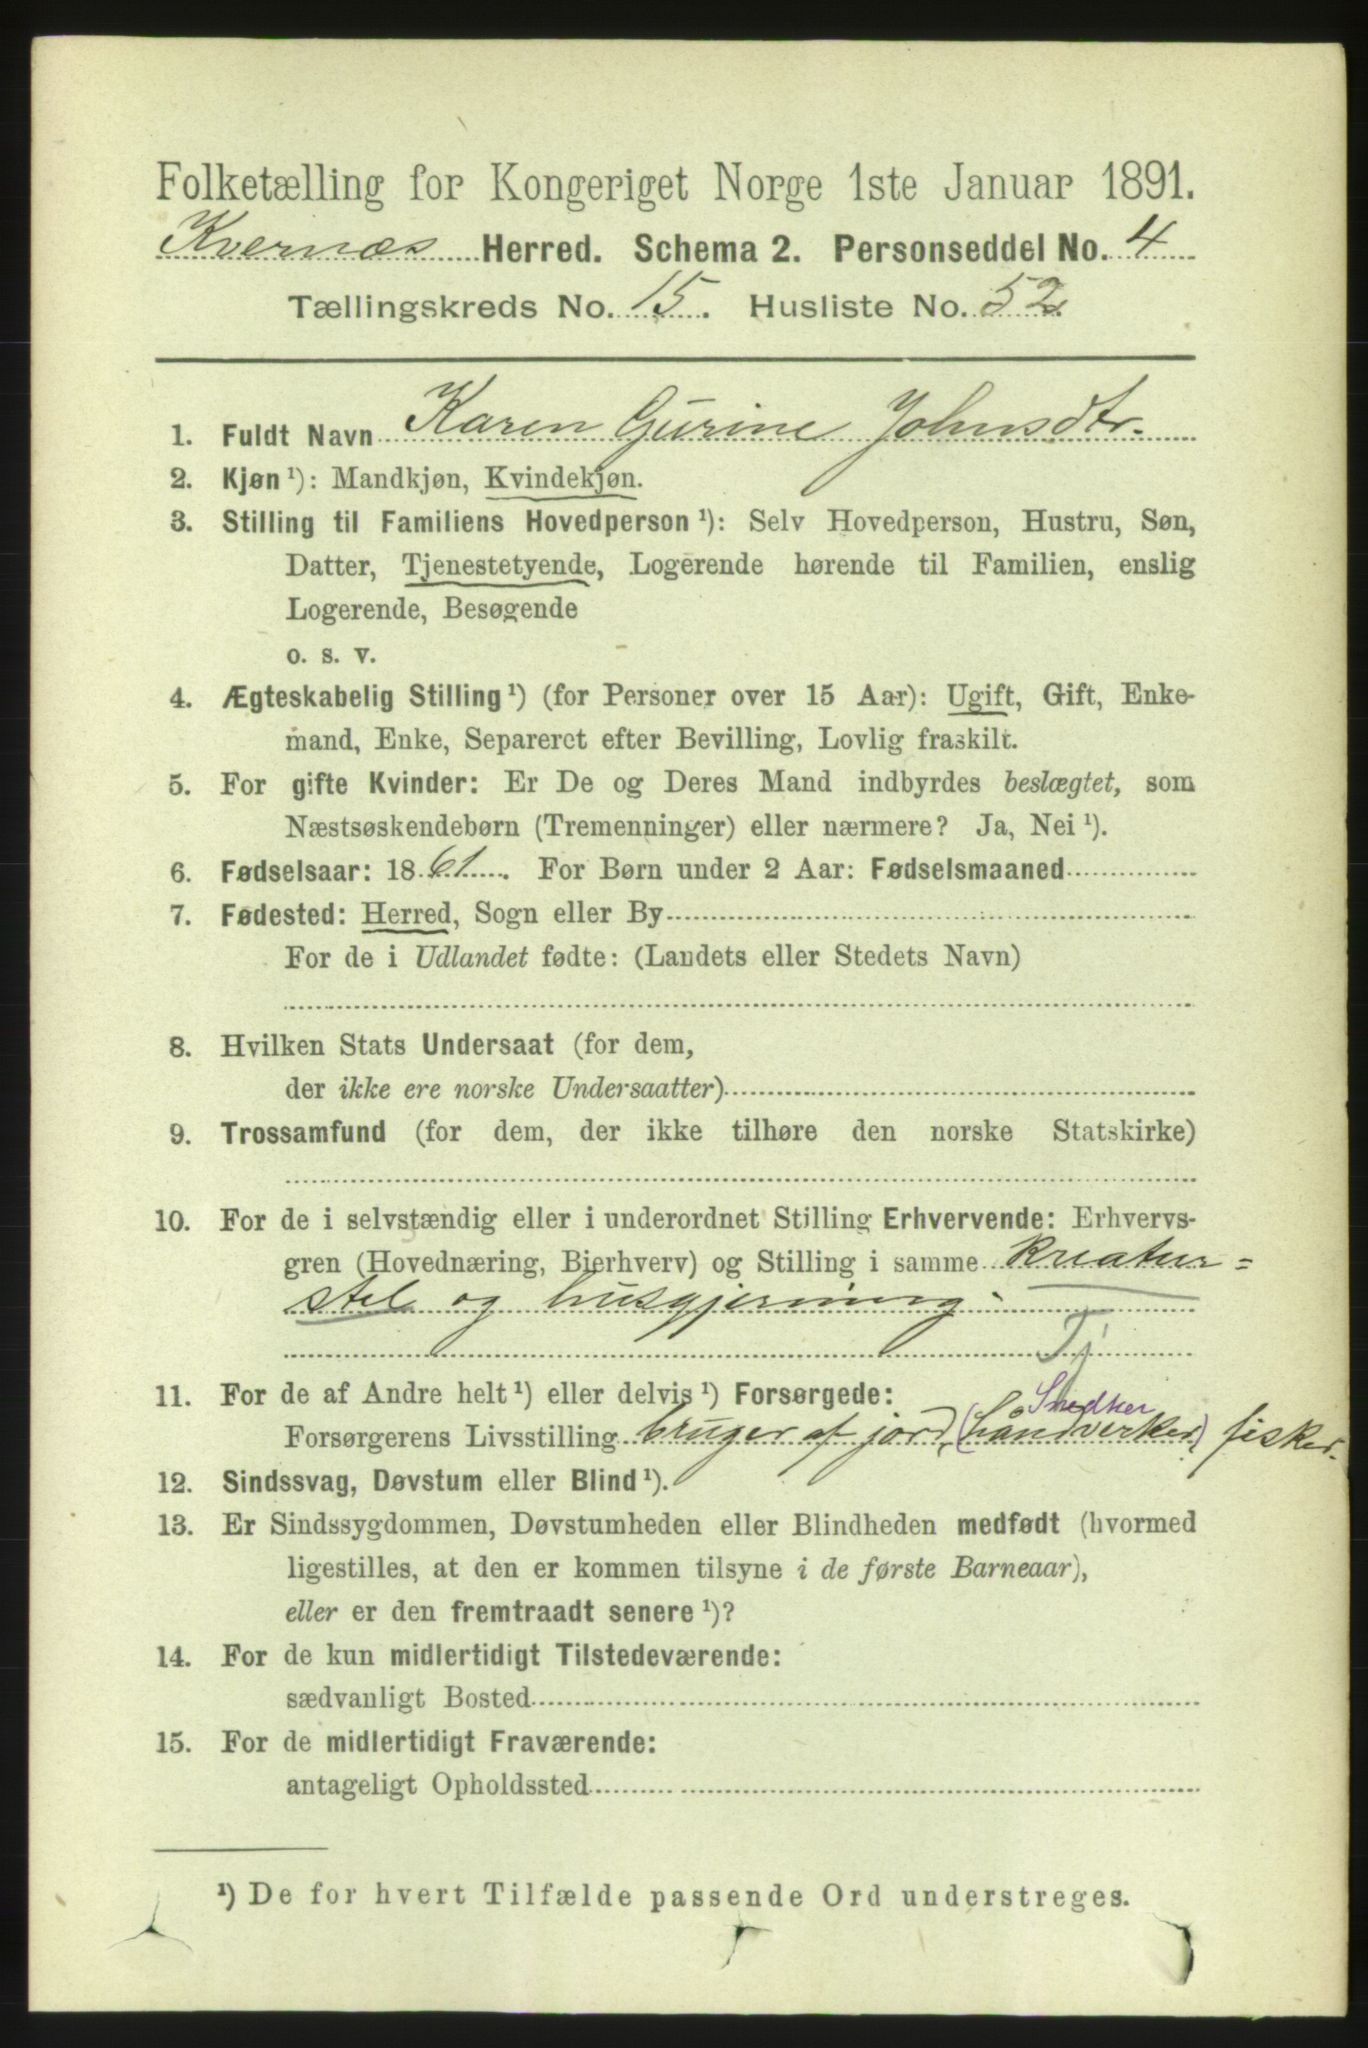 Folketælling for Kongeriget Norge 1ste Januar 1891.
Kvernæs Herred. Schema 2. Personseddel No. 4
Tællingskreds No. 15. Husliste No. 52.
1. Fuldt Navn Karen Gurine Johnsdtr.
2. Kjøn ¹): Mandkjøn, Kvindekjøn.
3. Stilling til Familiens Hovedperson ¹): Selv Hovedperson, Hustru, Søn,
Datter, Tjenestetyende, Logerende hørende til Familien, enslig
Logerende, Besøgende
o. s. v.
4. Ægteskabelig Stilling ¹) (for Personer over 15 Aar): Ugift, Gift, Enke-
mand, Enke, Separeret efter Bevilling, Lovlig fraskilt.
5. For gifte Kvinder: Er De og Deres Mand indbyrdes beslægtet, som
Næstsøskendebørn (Tremenninger) eller nærmere? Ja, Nei ¹).
6. Fødselsaar: 1861. For Børn under 2 Aar: Fødselsmaaned
7. Fødested: Herred, Sogn eller By
For de i Udlandet fødte: (Landets eller Stedets Navn)
8. Hvilken Stats Undersaat (for dem,
der ikke ere norske Undersaatter)
9. Trossamfund (for dem, der ikke tilhøre den norske Statskirke)
10. For de i selvstændig eller i underordnet Stilling Erhvervende: Erhvervs-
gren (Hovednæring, Bierhverv) og Stilling i samme kreatur=
stel og husgjerning.
Tj
11. For de af Andre helt ¹) eller delvis ¹) Forsørgede:
Snedker
Forsørgerens Livsstilling bruger af jord, (håndverker) fisker.
12. Sindssvag, Døvstum eller Blind ¹).
13. Er Sindssygdommen, Døvstumheden eller Blindheden medfødt (hvormed
ligestilles, at den er kommen tilsyne i de første Barneaar),
eller er den fremtraadt senere ¹)?
14. For de kun midlertidigt Tilstedeværende:
sædvanligt Bosted
15. For de midlertidigt Fraværende:
antageligt Opholdssted
¹) De for hvert Tilfælde passende Ord understreges.